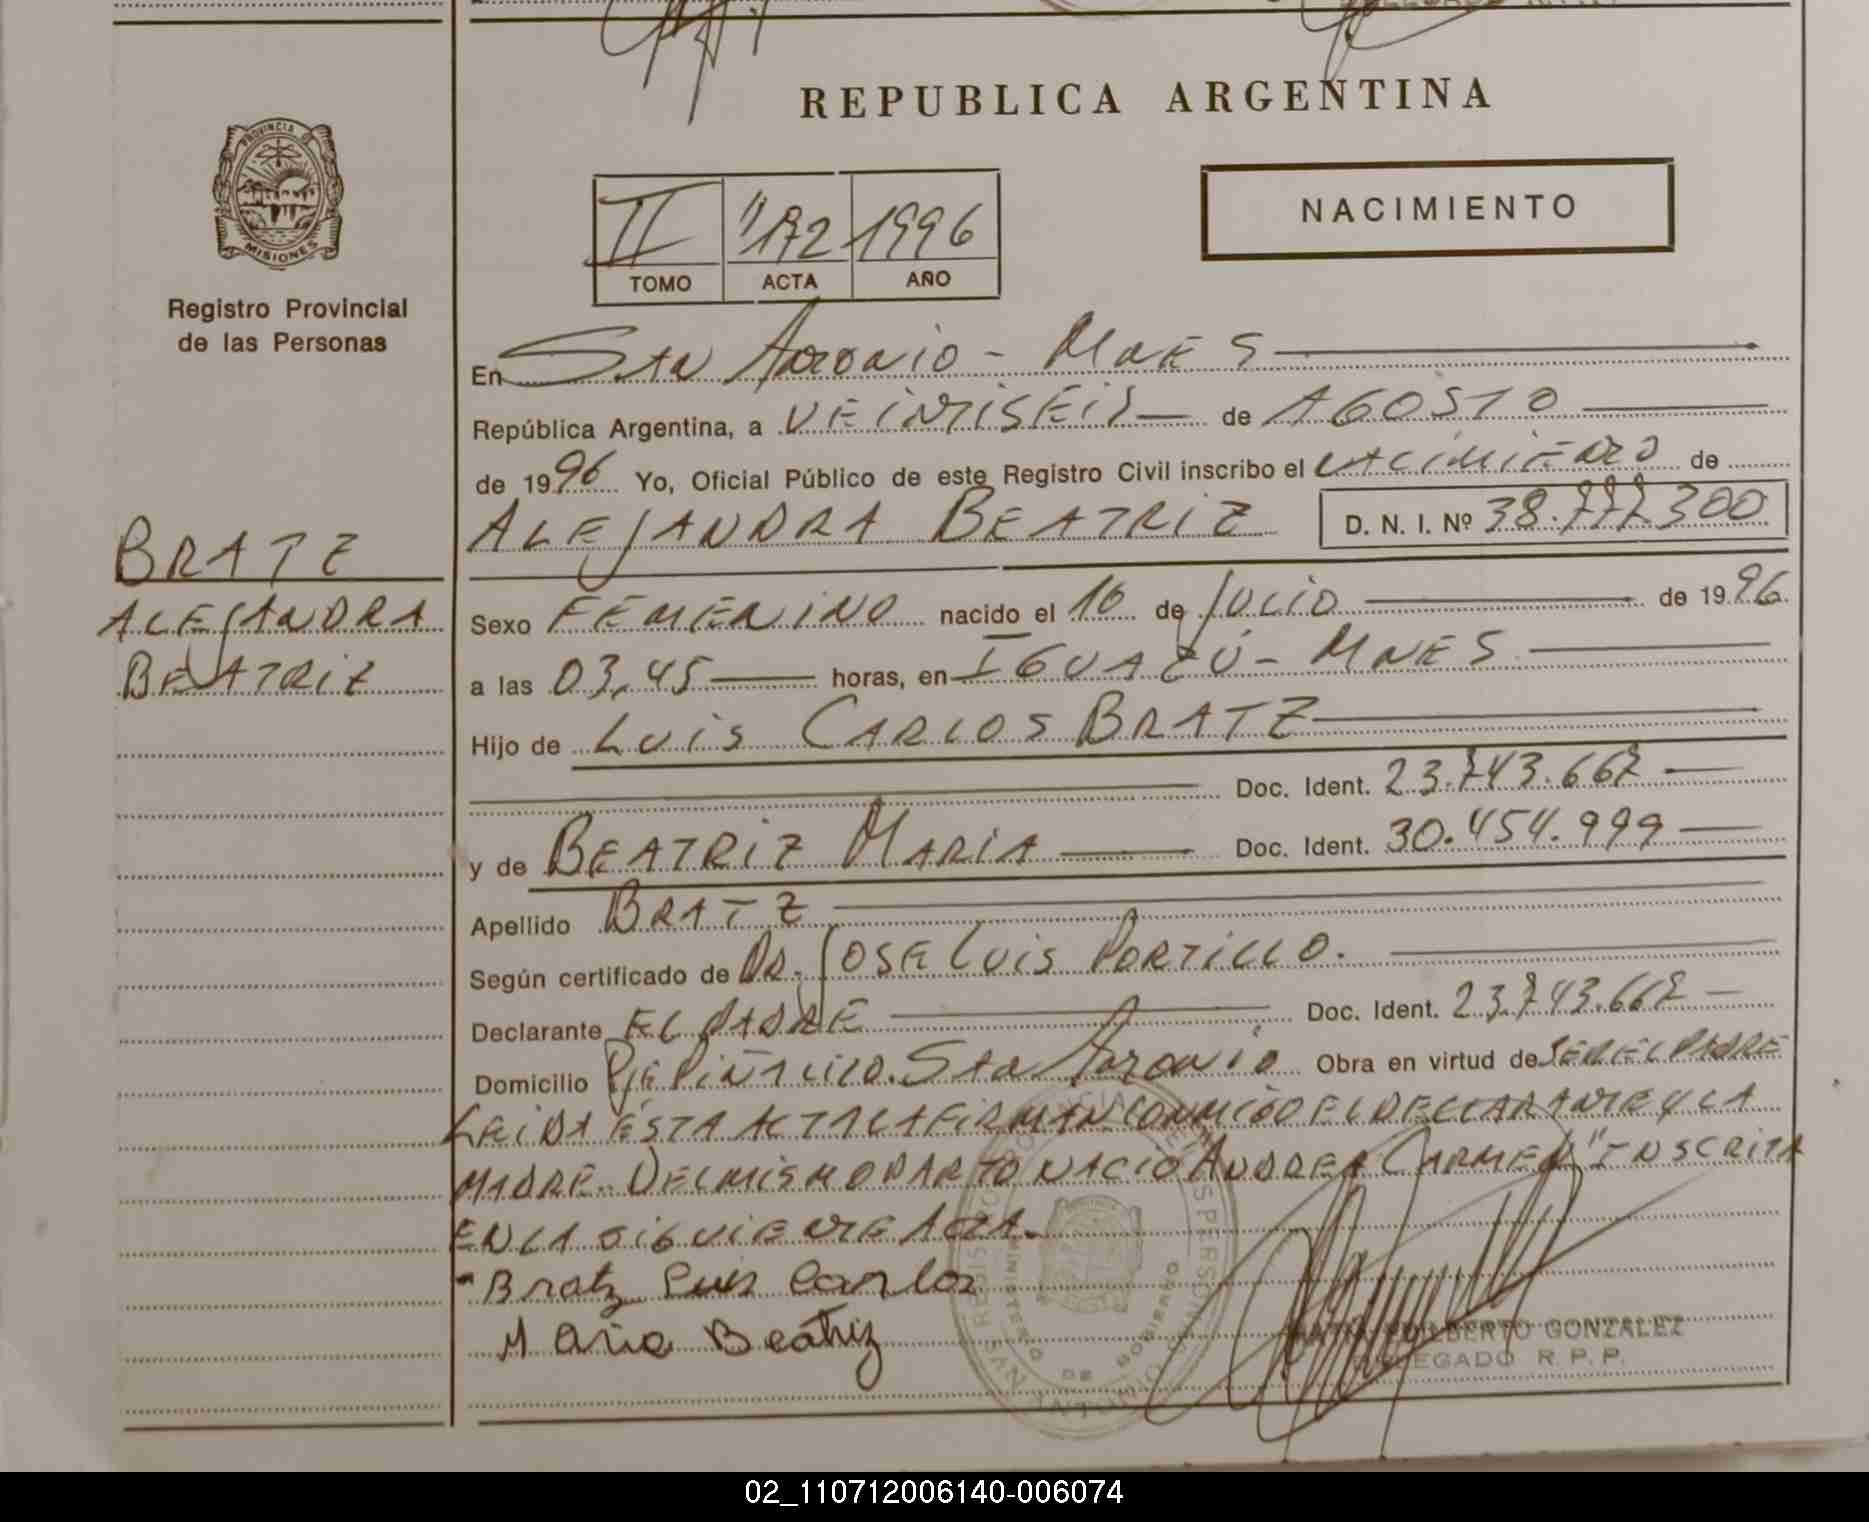 REPUBLICA ARGENTINA
PROVINCIA DE
MISIONES
Registro Provincial
de las Personas
NACIMIENTO
II "172 1996
TOMO ACTA AÑO
En Sta Antonio - Mnes
República Argentina, a VEINTISEIS de AGOSTO
de 1996 Yo, Oficial Público de este Registro Civil inscribo el NACIMIENTO de
ALEJANDRA BEATRIZ D. N. I. Nº 38.777.300
BRATZ
ALEJANDRA
BEATRIZ
Sexo FEMENINO nacido el 16 de JULIO de 1996
a las 03,45 horas, en IGUAZÚ - MNES
Hijo de LUIS CARLOS BRATZ
Doc. Ident. 23.743.667
y de BEATRIZ MARIA Doc. Ident. 30.454.999
Apellido BRATZ
Según certificado de DR. JOSE LUIS PORTILLO.
Declarante EL PADRE Doc. Ident. 23.743.667
Domicilio Sta Antonio Obra en virtud de SER EL PADRE
LEIDA ÉSTA ACTA LA FIRMAN CONMIGO EL DECLARANTE Y LA
MADRE. DEL MISMO PARTO NACIO ANDREA CARMEN "INSCRITA
EN LA SIGUIENTE ACTA.
- Bratz Luis Carlos
Maria Beatriz
GONZALEZ
DELEGADO R. P. P.
MINISTERIO DE GOBIERNO
02_110712006140-006074